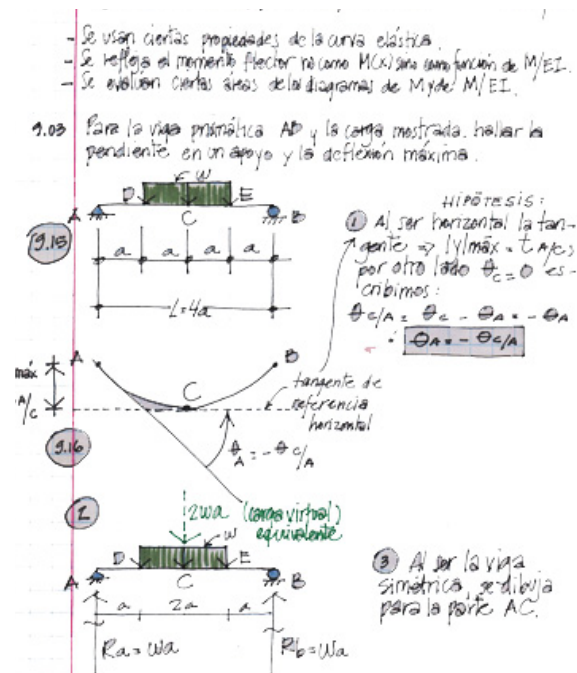 - Se usan ciertas propiedades de la curva elástica.
- Se refleja el momento flector no como M(x) sino como función de M/EI.
- Se evalúan ciertas áreas de los diagramas de M y de M/EI.
9.03 Para la viga prismática AB y la carga mostrada, hallar la
pendiente en un apoyo y la deflexión máxima.
w
D E
A C B
9.15
a a a a
L=4a
HIPÓTESIS:
① Al ser horizontal la tan-
gente => |y|máx = t A/C;
por otro lado θc = 0 es-
cribimos:
θ C/A = θc - θA = -θA
∴ θA = - θC/A
A B
máx
C
A/C
tangente de
referencia
horizontal
9.16
θA = -θ C/A
2
2wa (carga virtual)
equivalente
w
D E
A C B
a 2a a
Ra = wa Rb = wa
③ Al ser la viga
simétrica, se dibuja
para la parte AC.